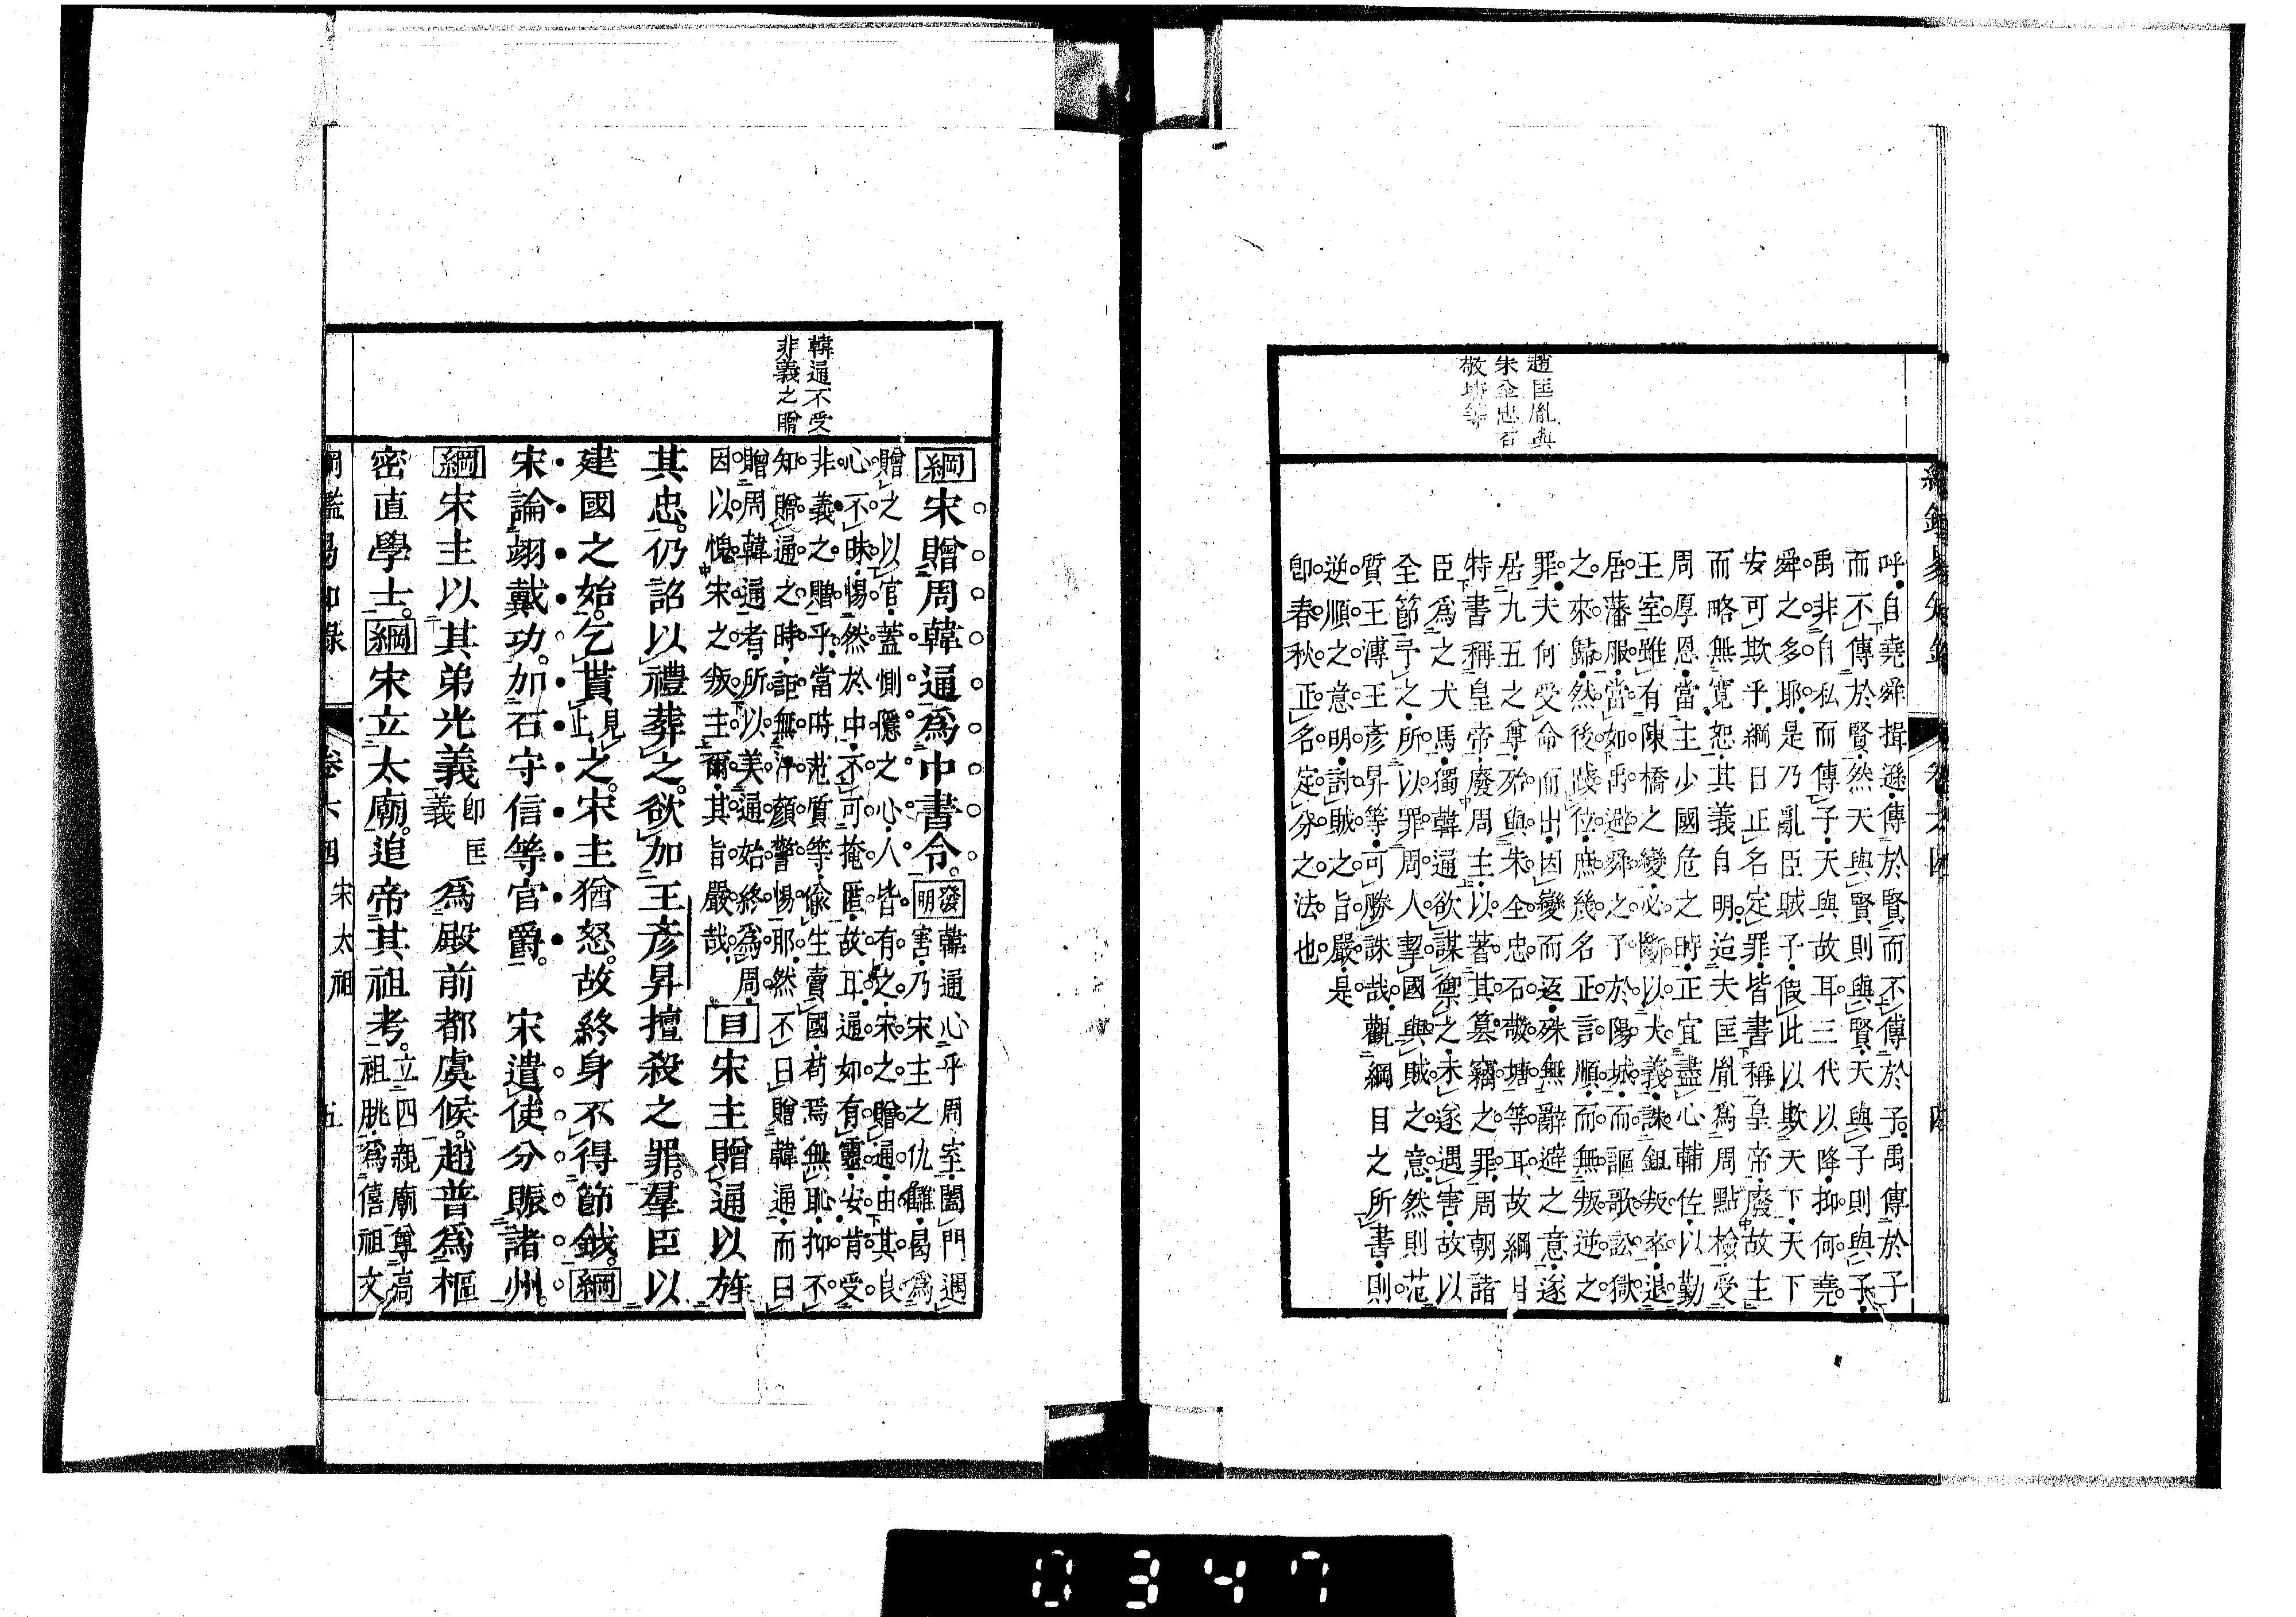 趙匡胤與
朱全忠石
敬塘等
呼自堯舜揖遜傳於賢而不傳於子禹傳於子
而不傳於賢然天與賢則與賢天與子則與子
禹非自私而傳子天與故耳三代以降抑何堯
舜之多耶是乃亂臣賊子假此以欺天下天下
安可欺乎綱目正名定罪皆書稱皇帝廢故主
而略無寬恕其義自明迨夫匡胤爲周點檢受
周厚恩當主少國危之時正宜盡心輔佐以勤
王室雖有陳橋之變必斷以大義誅鉏叛卒退
居藩服當如禹避舜之子於陽城而謳歌訟獄
之來歸然後踐位庶幾名正言順而無叛逆之
罪夫何受命而出因變而返殊無辭避之意遂
居九五之尊殆與朱全忠石敬塘等耳故綱目
特書稱皇帝廢周主以著其篡竊之罪周朝諸
臣爲之犬馬獨韓通欲謀禦之未遂遇害故以
全節予之所以罪周人挈國與賊之意然則范
質王溥王彥昇等可勝誅哉觀綱目之所書則
逆順之意明討賊之旨嚴是
卽春秋正名定分之法也
韓通不受
非義之贈
綱宋贈周韓通爲中書令。發明韓通心乎周室闔門遇
害乃宋主之仇讎曷爲
贈之以官蓋惻隱之心人皆有之宋之贈通由其良
心不昧惕然於中不可掩匿故耳通如有靈安肯受
非義之贈乎當時范質等偸生賣國苟焉無恥抑不
知贈通之時詎無汗顏警惕耶然不曰贈韓通而曰
贈周韓通者所以美通始終爲周
因以愧宋之叛主爾其旨嚴哉
目宋主贈通以旌
其忠。仍詔以禮葬之。欲加王彥昇擅殺之罪。羣臣以
建國之始。乞貰見止之。宋主猶怒。故終身不得節鉞。綱
宋論翊戴功。加石守信等官爵。 宋遣使分賑諸州。
綱宋主以其弟光義卽匡義爲殿前都虞候。趙普爲樞
密直學士。綱宋立太廟。追帝其祖考。立四親廟尊高
祖朓爲僖祖文
綱鑑易知錄 卷六四 宋太祖 五